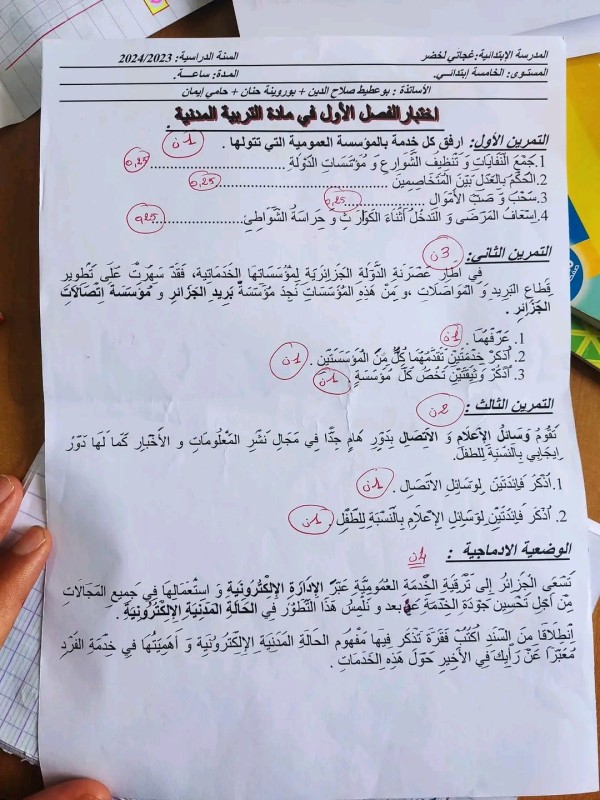 المدرسة الإبتدائية: غجاتي لخضر السنة الدراسية: 2024/2023
المستوى: الخامسة إبتدائي. المدة: ساعة.
الأساتذة : بوعطيط صلاح الدين + بوروينة حنان + حامي إيمان
اختبار الفصل الأول في مادة التربية المدنية
التمرين الأول: ارفق كل خدمة بالمؤسسة العمومية التي تتولها . 1ن
1. جَمْعُ النِّفَايَاتِ وَ تَنْظِيفُ الشَّوَارِعِ وَ مُؤَسَّسَاتِ الدَّوْلَةِ .................. 0,25
2. الْحُكْمُ بِالْعَدْلِ بَيْنَ الْمُتَخَاصِمِينَ .................. 0,25
3. سَحْبُ وَ صَبُّ الْأَمْوَالِ .................. 0,25
4. إِسْعَافُ الْمَرْضَى وَ التَّدَخُّلُ أَثْنَاءَ الْكَوَارِثِ وَ حِرَاسَةُ الشَّوَاطِئِ .................. 0,25
التمرين الثاني: 3ن
فِي إِطَارِ عَصْرَنَةِ الدَّوْلَةِ الْجَزَائِرِيَّةِ لِمُؤَسَّسَاتِهَا الْخَدَمَاتِيَّةِ، فَقَدْ سَهِرَتْ عَلَى تَطْوِيرِ
قِطَاعِ الْبَرِيدِ وَ الْمُوَاصَلَاتِ ، وَ مِنْ هَذِهِ الْمُؤَسَّسَاتِ نَجِدُ مُؤَسَّسَةَ بَرِيدِ الْجَزَائِرِ وَ مُؤَسَّسَةَ اتِّصَالَاتِ
الْجَزَائِرِ .
1. عَرِّفْهُمَا . 1ن
2. اُذْكُرْ خِدْمَتَيْنِ تُقَدِّمُهُمَا كُلٌّ مِنَ الْمُؤَسَّسَتَيْنِ . 1ن
3. اُذْكُرْ وَثِيقَتَيْنِ تَخُصُّ كُلَّ مُؤَسَّسَةٍ . 1ن
التمرين الثالث : 2ن
تَقُومُ وَسَائِلُ الْإِعْلَامِ وَ الِاتِّصَالِ بِدَوْرٍ هَامٍّ جِدًّا فِي مَجَالِ نَشْرِ الْمَعْلُومَاتِ وَ الْأَخْبَارِ كَمَا لَهَا دَوْرٌ
إِيجَابِي بِالنِّسْبَةِ لِلطِّفْلِ.
1. اُذْكُرْ فَائِدَتَيْنِ لِوَسَائِلِ الِاتِّصَالِ . 1ن
2. اُذْكُرْ فَائِدَتَيْنِ لِوَسَائِلِ الْإِعْلَامِ بِالنِّسْبَةِ لِلطِّفْلِ . 1ن
الوضعية الادماجية : 4ن
تَسْعَى الْجَزَائِرُ إِلَى تَرْقِيَةِ الْخِدْمَةِ الْعُمُومِيَّةِ عَبْرَ الْإِدَارَةِ الْإِلِكْتِرُونِيَّةِ وَ اسْتِعْمَالِهَا فِي جَمِيعِ الْمَجَالَاتِ
مِنْ أَجْلِ تَحْسِينِ جَوْدَةِ الْخِدْمَةِ عَنْ بعد وَ نَلْمِسُ هَذَا التَّطَوُّرَ فِي الْحَالَةِ الْمَدَنِيَّةِ الْإِلِكْتِرُونِيَّةِ .
اِنْطِلَاقًا مِنَ السَّنَدِ اُكْتُبْ فَقْرَةً تَذْكُرُ فِيهَا مَفْهُومَ الْحَالَةِ الْمَدَنِيَّةِ الْإِلِكْتِرُونِيَّةِ وَ أَهَمِّيَّتُهَا فِي خِدْمَةِ الْفَرْدِ
مُعَبِّرًا عَنْ رَأْيِكَ فِي الْأَخِيرِ حَوْلَ هَذِهِ الْخَدَمَاتِ .